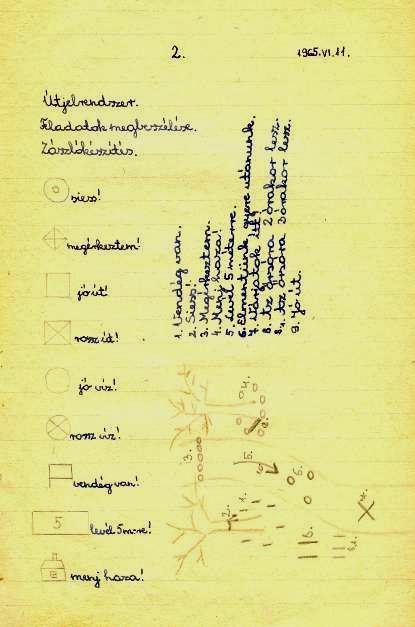 2.
1965.VI.11.
Útjelrendszer.
Feladatok megbeszélése.
Zászlókészítés.
siess!
megérkeztem!
jó út!
rossz út!
jó víz!
rossz víz!
vendég van!
5 levél 5m-re!
menj haza!
1. Vendég van.
2. Siess!
3. Megérkeztem.
4. Menj haza!
5. Levél 5 méterre.
6. Elmentünk gyere utánunk.
7. Várjatok itt!
8. Az őrsgyűlés 2 órakor lesz.
8.1. Az 3 órakor lesz.
9. jó út.
3.
4.
2.
1.
5.
6.
8.